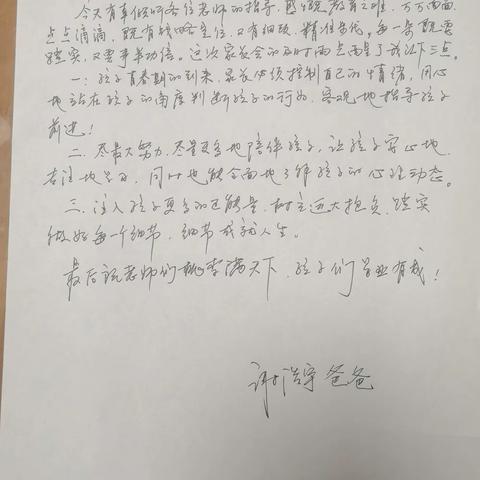 今天有幸倾听各位老师的指导，图说教育之难，方方面面
点点滴滴，既有战略定位，又有细致、精准步伐。每一条既要
踏实，又要事半功倍。这次家长会的及时雨点亮了前以下三点。
一：孩子青春期的到来，家长必须控制自己的情绪，用心
地站在孩子的角度判断孩子的行为，客观地指导孩子
前进！
二、尽最大努力，尽量更多地陪伴孩子，让孩子安心地、
专注地学习，同时也能全面地了解孩子的心理动态。
三、注入孩子更多的正能量，树立远大抱负，踏实
做好每一个细节，细节成就人生。
最后祝老师们桃李满天下，孩子们学业有成！
谢浩宇爸爸